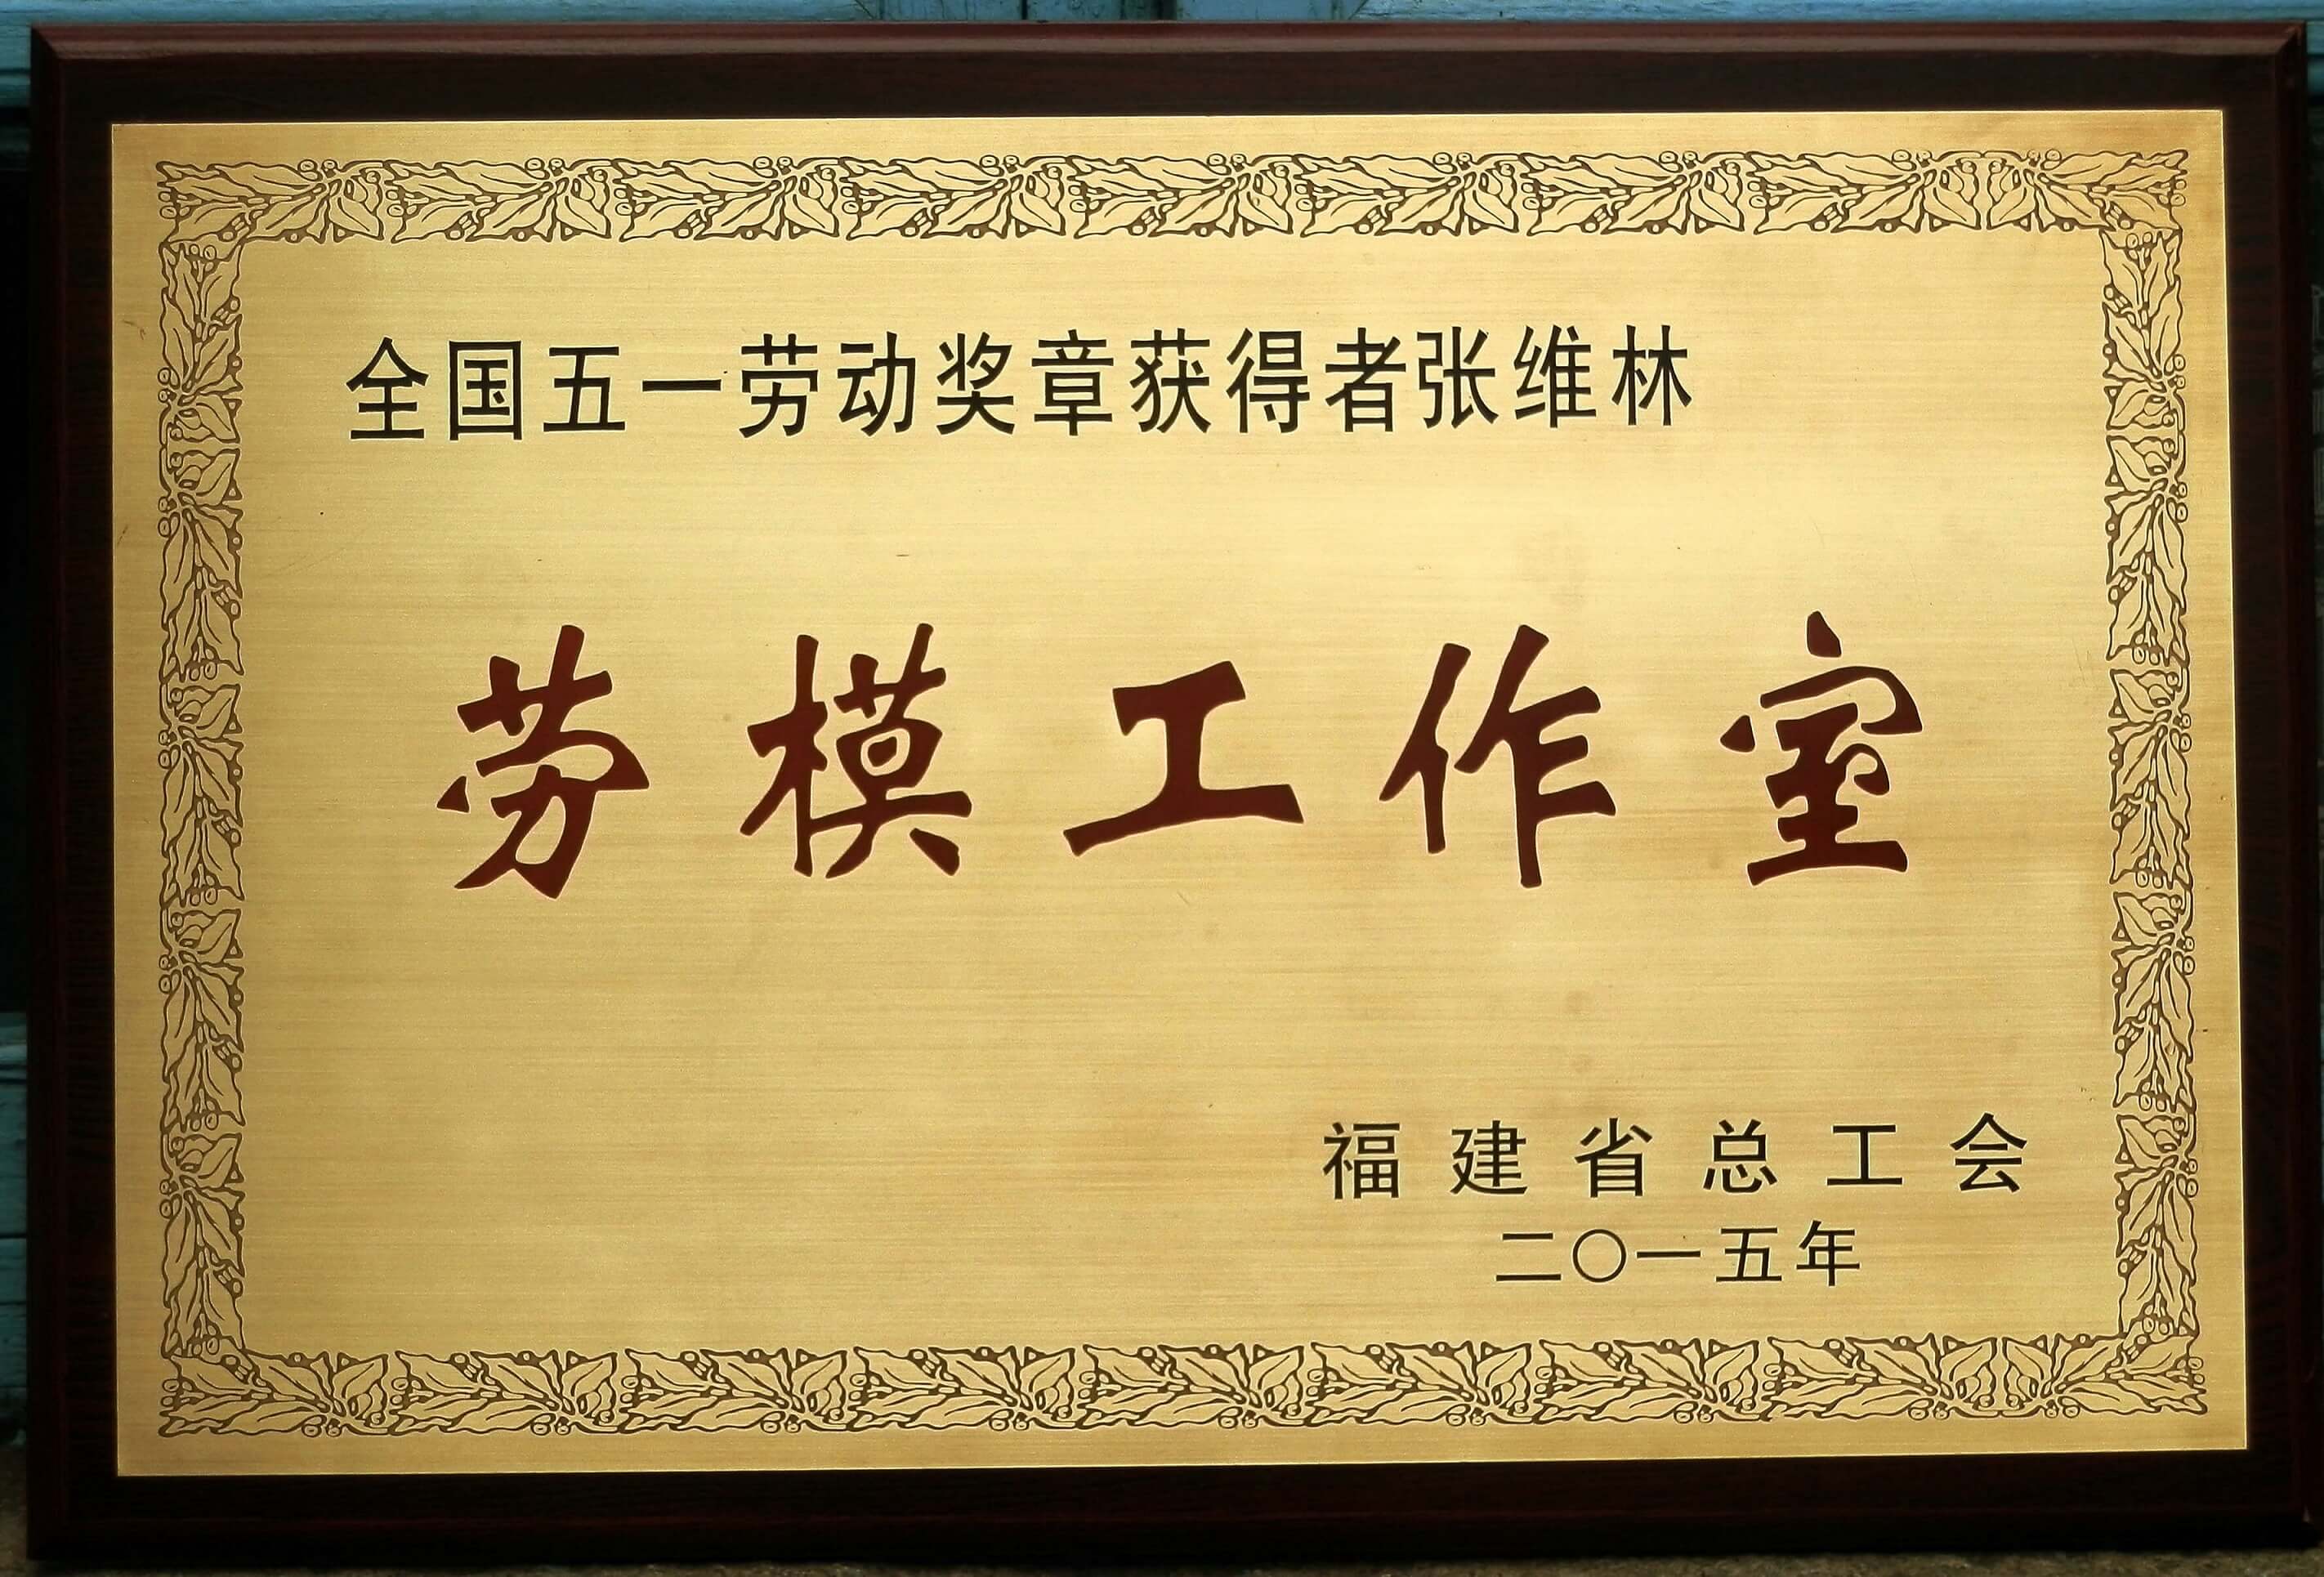 全国五一劳动奖章获得者张维林
劳模工作室
福建省总工会
二〇一五年